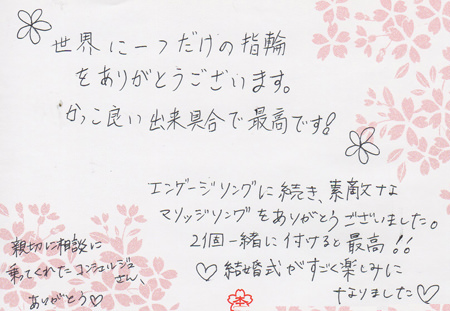 世界に一つだけの指輪
をありがとうございます。
かっこ良い出来具合で最高です!
エンゲージリングに続き、素敵な
マリッジリングをありがとうございました。
2個一緒に付けると最高!!
♡結婚式がすごく楽しみに
なりました♡
親切に相談に
乗ってくれたコンシェルジュ
さん、
ありがとう♡